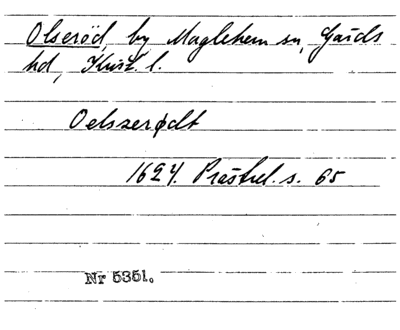 Olseröd, by Maglehem sn, Gärds
hd, Krist. l.
Oelszerødt
1624. Prästrel. s. 65
Nr 5351.